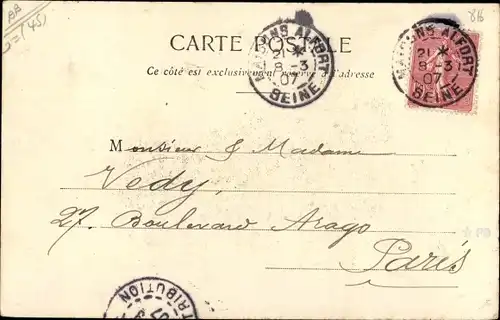 BB
= (45)
816
CARTE POSTALE
Ce côté est exclusivement réservé à l'adresse
MAISONS ALFORT
21 *
8 -3
07
SEINE
MAISONS ALFORT
21 *
8 -3
07
SEINE
Monsieur & Madame
Vedy,
27. Boulevard Arago
Paris
DISTRIBUTION
07